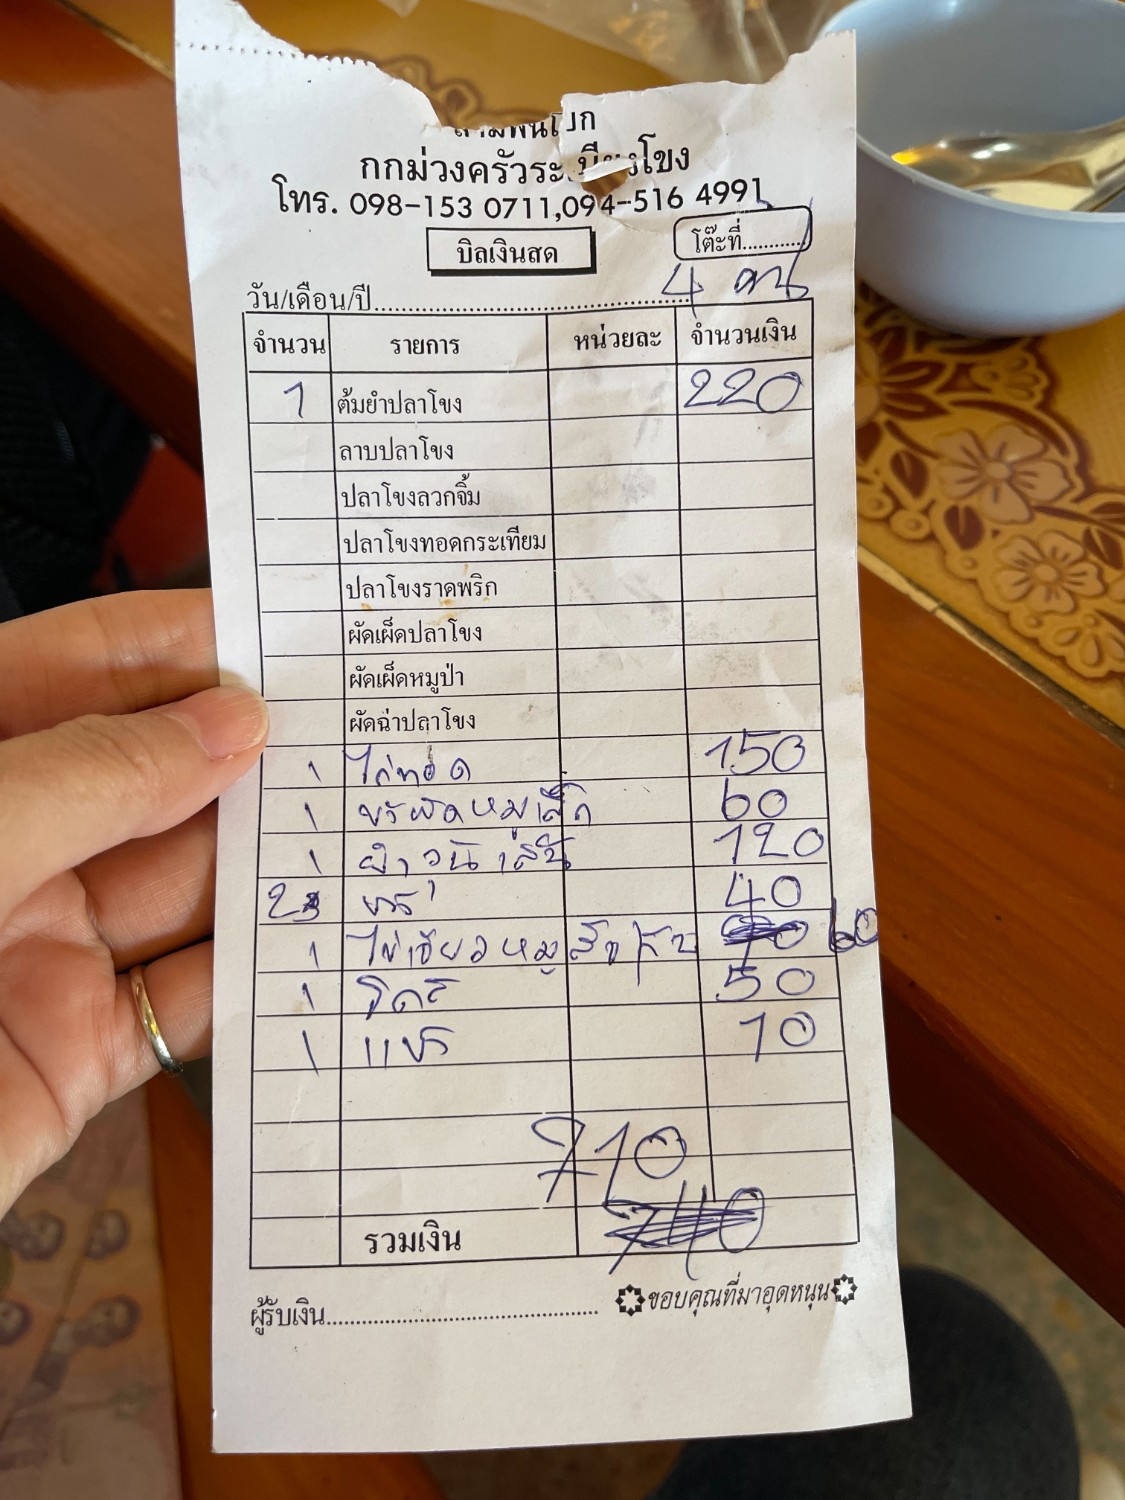 กกม่วงครัวระเบียงโขง
โทร. 098-153 0711,094-516 4991
บิลเงินสด โต๊ะที่............
วัน/เดือน/ปี........................................ 4 คน
จำนวน รายการ หน่วยละ จำนวนเงิน
1 ต้มยำปลาโขง 220
ลาบปลาโขง
ปลาโขงลวกจิ้ม
ปลาโขงทอดกระเทียม
ปลาโขงราดพริก
ผัดเผ็ดปลาโขง
ผัดเผ็ดหมูป่า
ผัดฉ่าปลาโขง
1 ไก่ทอด 150
1 60
1 ยำวุ้นเส้น 120
2 40
1 ไข่เจียวหมูสับ 60
1 50
1 10
710
รวมเงิน 740
ผู้รับเงิน........................................ ขอบคุณที่มาอุดหนุน